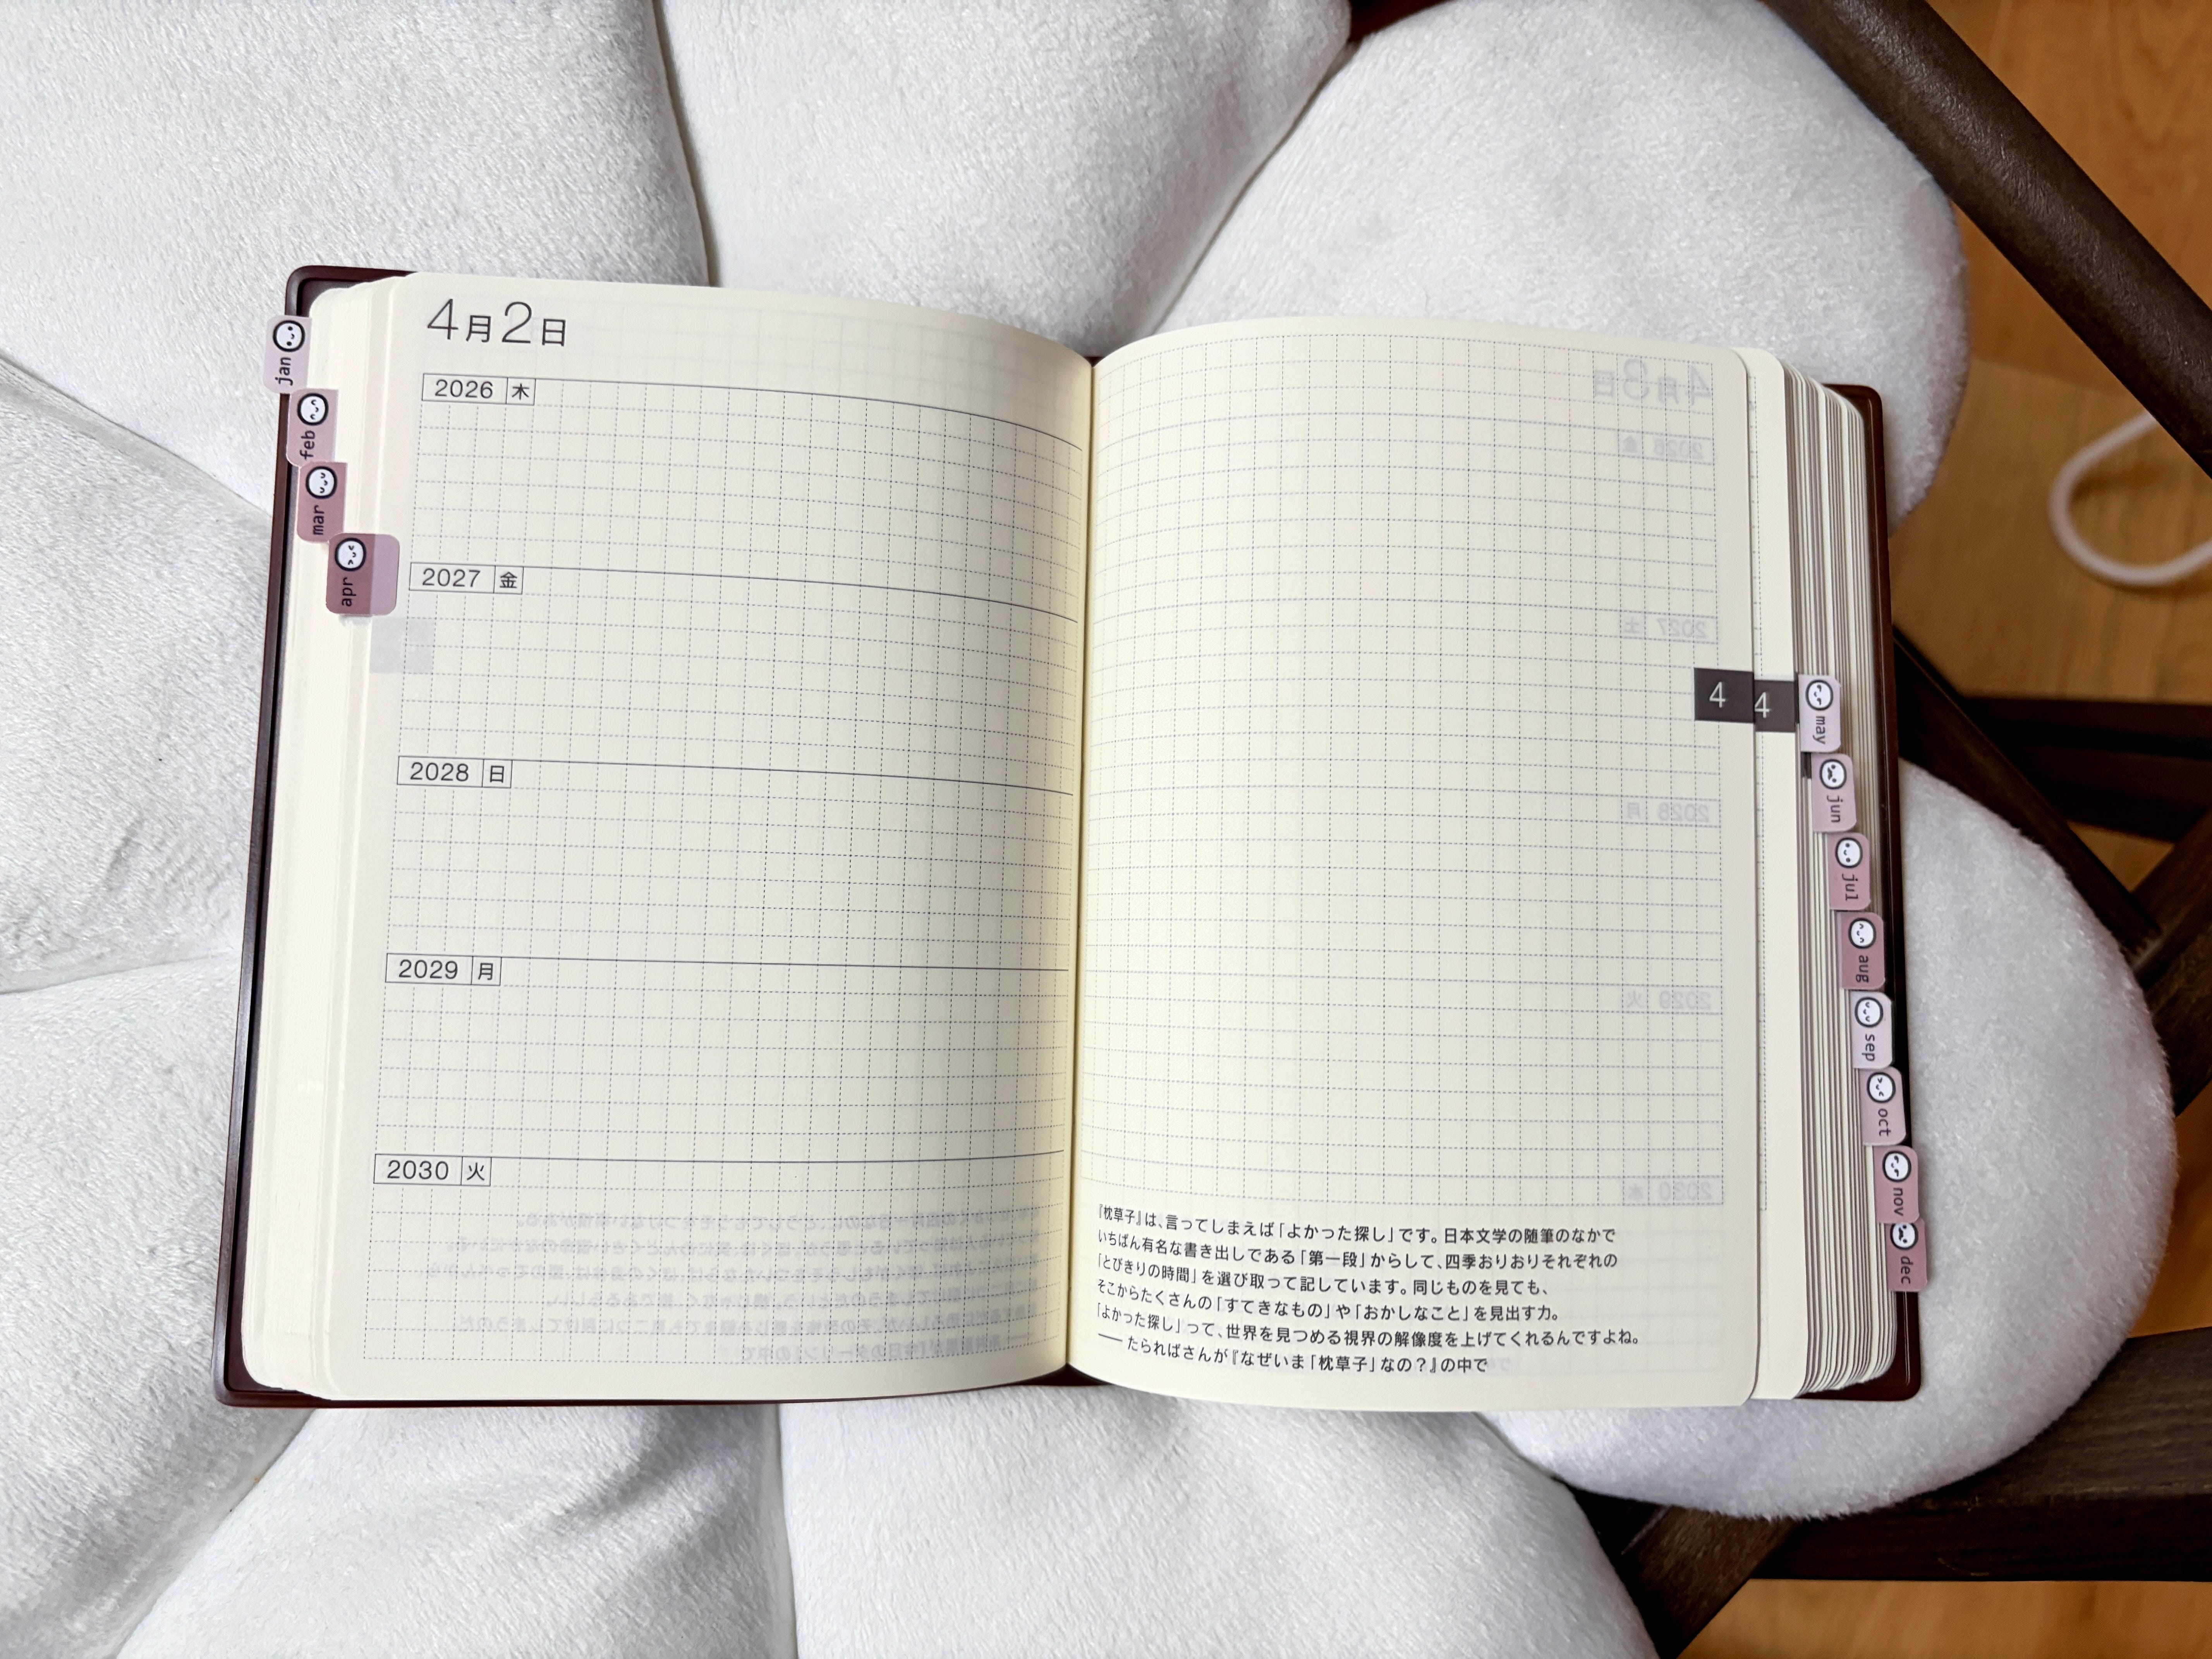 4月2日
2026 木
2027 金
2028 日
2029 月
2030 火
jan
feb
mar
apr
4
4
may
jun
jul
aug
sep
oct
nov
dec
『枕草子』は、言ってしまえば「よかった探し」です。日本文学の随筆のなかで
いちばん有名な書き出しである「第一段」からして、四季おりおりそれぞれの
「とびきりの時間」を選び取って記しています。同じものを見ても、
そこからたくさんの「すてきなもの」や「おかしなこと」を見出す力。
「よかった探し」って、世界を見つめる視界の解像度を上げてくれるんですよね。
── たらればさんが『なぜいま「枕草子」なの？』の中で